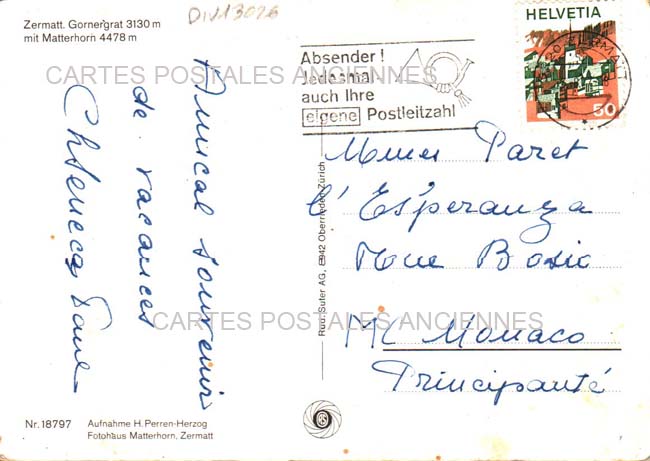 Zermatt. Gornergrat 3130 m
mit Matterhorn 4478 m
DIV13026
CARTES POSTALES ANCIENNES
Absender!
Jedesmal
auch Ihre
eigene Postleitzahl
HELVETIA
50
ZERMATT
Amical souvenir
de vacances
Mmes Paret
l'Esperanza
Rue Bosio
Mc Monaco
Principauté
Rud. Suter AG, 8942 Oberrieden-Zürich
CARTES POSTALES ANCIENNES
Nr. 18797
Aufnahme H. Perren-Herzog
Fotohaus Matterhorn, Zermatt